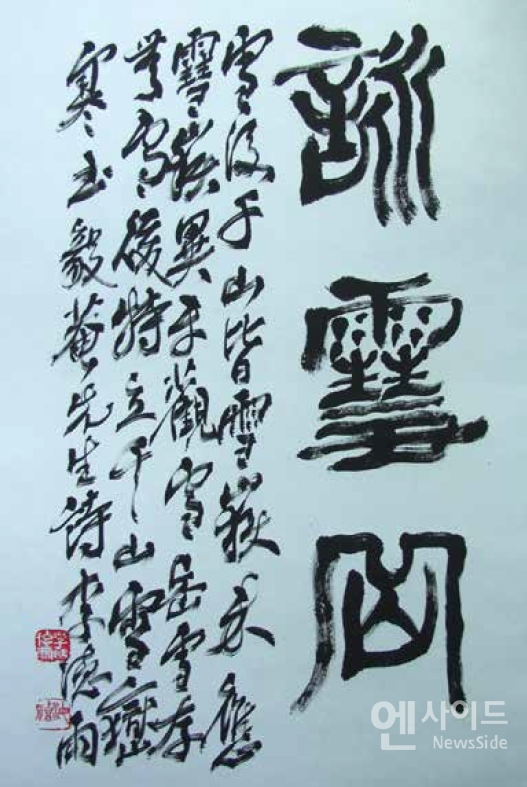 詠雪
雪後千山皆雪嶽未應
雪嶽異平觀雪岳雪存
雪後特立千山雪嶽
寒 毅菴先生詩 李德雨
엔사이드
NewsSide